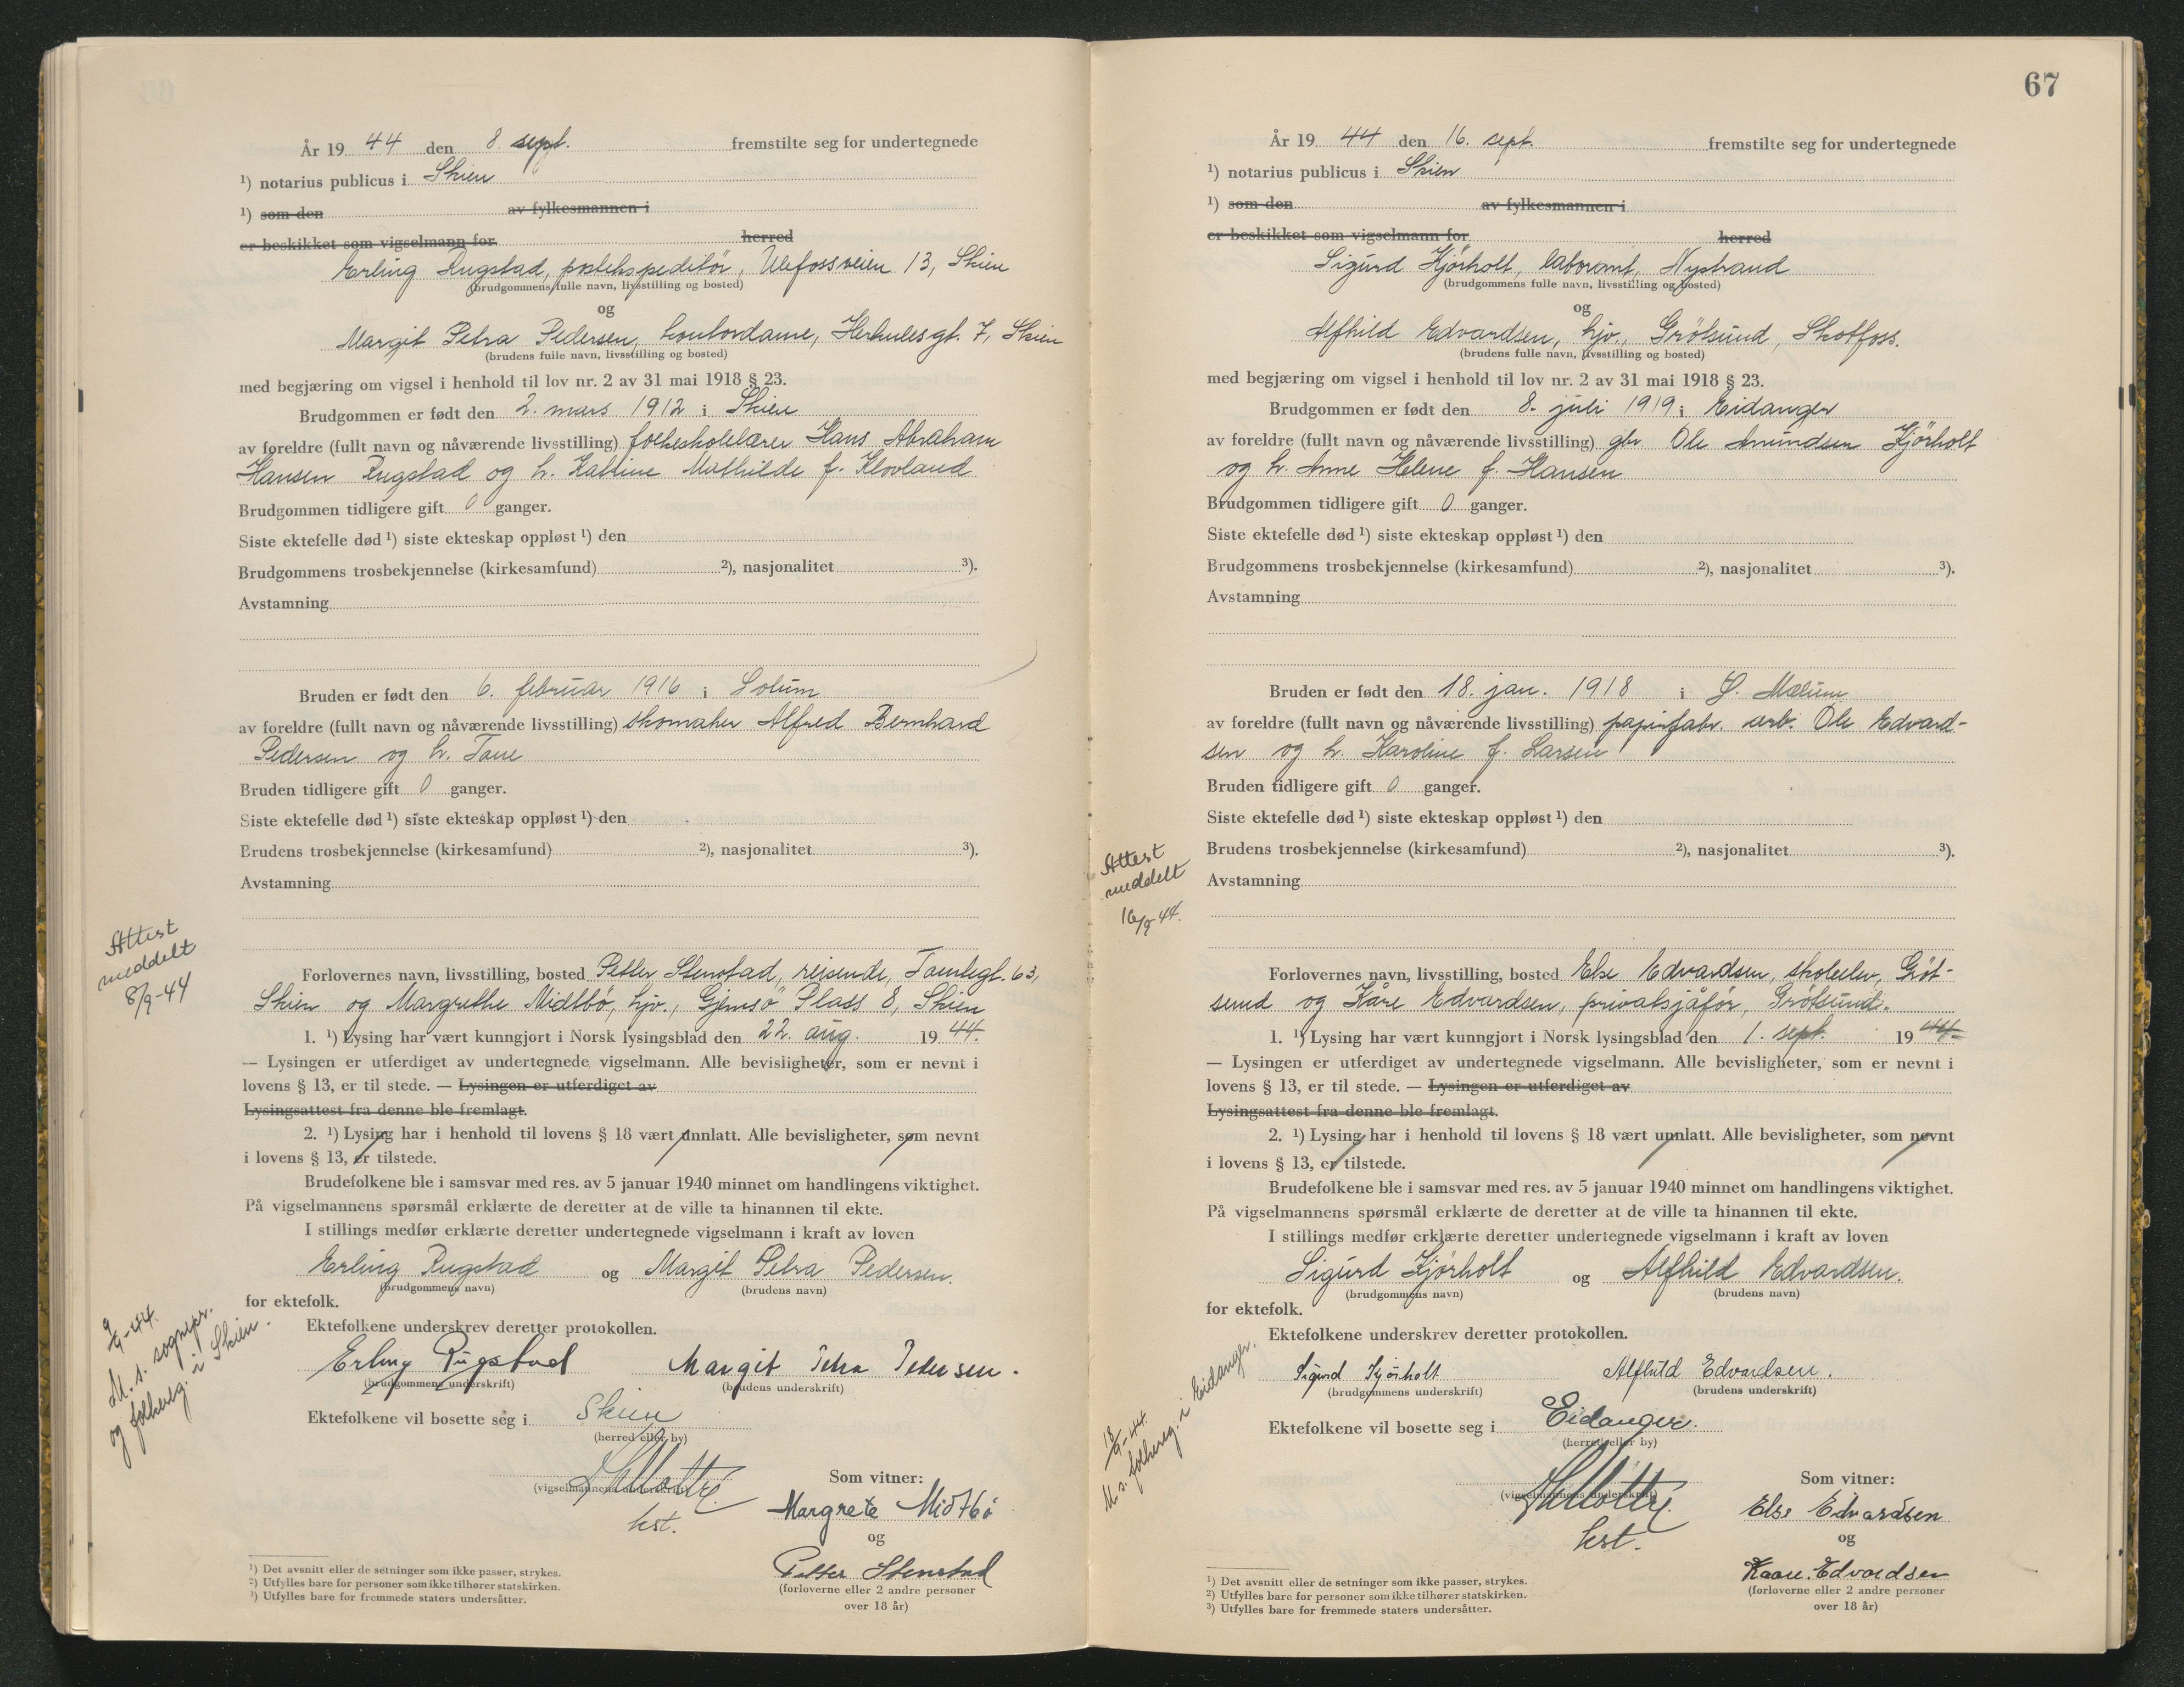 År 19 44 den 8 sept. fremstilte seg for undertegnede
¹) notarius publicus i Skien
¹) som den av fylkesmannen i
er beskikket som vigselmann for herred
Erling Rugstad, postekspeditør, Ulefossveien 13, Skien
(brudgommens fulle navn, livsstilling og bosted)
og
Margit Petra Pedersen, kontordame, Herkulesgt. 7, Skien
(brudens fulle navn, livsstilling og bosted)
med begjæring om vigsel i henhold til lov nr. 2 av 31 mai 1918 § 23.
Brudgommen er født den 2. mars 1912 i Skien
av foreldre (fullt navn og nåværende livsstilling) folkeskolelærer Hans Abraham
Hansen Rugstad og h. Katrine Mathilde f. Klovland
Brudgommen tidligere gift 0 ganger.
Siste ektefelle død ¹) siste ekteskap oppløst ¹) den
Brudgommens trosbekjennelse (kirkesamfund) ²), nasjonalitet ³).
Avstamning
Bruden er født den 6. februar 1916 i Solum
av foreldre (fullt navn og nåværende livsstilling) skomaker Alfred Bernhard
Pedersen og h. Tone
Bruden tidligere gift 0 ganger.
Siste ektefelle død ¹) siste ekteskap oppløst ¹) den
Brudens trosbekjennelse (kirkesamfund) ²), nasjonalitet ³).
Avstamning
Attest
meddelt
8/9-44
Forlovernes navn, livsstilling, bosted Petter Stenstad, reisende, 63,
Skien og Margrethe Midtbö, hjv., Gjemsö Plass 8, Skien
1. ¹) Lysing har vært kunngjort i Norsk lysingsblad den 22. aug. 19 44.
— Lysingen er utferdiget av undertegnede vigselmann. Alle bevisligheter, som er nevnt i
lovens § 13, er til stede. — Lysingen er utferdiget av
Lysingsattest fra denne ble fremlagt.
2. ¹) Lysing har i henhold til lovens § 18 vært unnlatt. Alle bevisligheter, som nevnt
i lovens § 13, er tilstede.
Brudefolkene ble i samsvar med res. av 5 januar 1940 minnet om handlingens viktighet.
På vigselmannens spørsmål erklærte de deretter at de ville ta hinannen til ekte.
I stillings medfør erklærte deretter undertegnede vigselmann i kraft av loven
Erling Rugstad og Margit Petra Pedersen.
(brudgommens navn) (brudens navn)
for ektefolk.
9/9-44.
M. s. sognepr.
og folkereg. i Skien.
Ektefolkene underskrev deretter protokollen.
Erling Rugstad Margit Petra Pedersen.
(brudgommens underskrift) (brudens underskrift)
Ektefolkene vil bosette seg i Skien
(herred eller by)
(vigselmannens underskrift)
kst.
Som vitner:
Margrete Midtbö
og
Petter Stenstad
(forloverne eller 2 andre personer
over 18 år)
¹) Det avsnitt eller de setninger som ikke passer, strykes.
²) Utfylles bare for personer som ikke tilhører statskirken.
³) Utfylles bare for fremmede staters undersåtter.
67
År 19 44 den 16. sept. fremstilte seg for undertegnede
¹) notarius publicus i Skien
¹) som den av fylkesmannen i
er beskikket som vigselmann for herred
Sigurd Kjörholt, laborant, Nystrand
(brudgommens fulle navn, livsstilling og bosted)
og
Alfhild Edvardsen, hjv., Grötsund, Skotfoss.
(brudens fulle navn, livsstilling og bosted)
med begjæring om vigsel i henhold til lov nr. 2 av 31 mai 1918 § 23.
Brudgommen er født den 8. juli 1919 i Eidanger
av foreldre (fullt navn og nåværende livsstilling) gbr Ole Amundsen Kjörholt
og h. Anne Helene f. Hansen
Brudgommen tidligere gift 0 ganger.
Siste ektefelle død ¹) siste ekteskap oppløst ¹) den
Brudgommens trosbekjennelse (kirkesamfund) ²), nasjonalitet ³).
Avstamning
Bruden er født den 18. jan. 1918 i S. Mælum
av foreldre (fullt navn og nåværende livsstilling) papirfabr. arb. Ole Edvard-
sen og h. Karoline f. Larsen
Bruden tidligere gift 0 ganger.
Siste ektefelle død ¹) siste ekteskap oppløst ¹) den
Brudens trosbekjennelse (kirkesamfund) ²), nasjonalitet ³).
Avstamning
Attest
meddelt
16/9-44.
Forlovernes navn, livsstilling, bosted Else Edvardsen, skoleelev, Gröt-
sund og Kåre Edvardsen, privatsjåför, Grötsund.
1. ¹) Lysing har vært kunngjort i Norsk lysingsblad den 1. sept. 19 44
— Lysingen er utferdiget av undertegnede vigselmann. Alle bevisligheter, som er nevnt i
lovens § 13, er til stede. — Lysingen er utferdiget av
Lysingsattest fra denne ble fremlagt.
2. ¹) Lysing har i henhold til lovens § 18 vært unnlatt. Alle bevisligheter, som nevnt
i lovens § 13, er tilstede.
Brudefolkene ble i samsvar med res. av 5 januar 1940 minnet om handlingens viktighet.
På vigselmannens spørsmål erklærte de deretter at de ville ta hinannen til ekte.
I stillings medfør erklærte deretter undertegnede vigselmann i kraft av loven
Sigurd Kjörholt og Alfhild Edvardsen.
(brudgommens navn) (brudens navn)
for ektefolk.
18/9-44.
M. s. folkereg. i Eidanger.
Ektefolkene underskrev deretter protokollen.
Sigurd Kjörholt Alfhild Edvardsen.
(brudgommens underskrift) (brudens underskrift)
Ektefolkene vil bosette seg i Eidanger.
(herred eller by)
(vigselmannens underskrift)
kst.
Som vitner:
Else Edvardsen
og
Kaare Edvardsen
(forloverne eller 2 andre personer
over 18 år)
¹) Det avsnitt eller de setninger som ikke passer, strykes.
²) Utfylles bare for personer som ikke tilhører statskirken.
³) Utfylles bare for fremmede staters undersåtter.